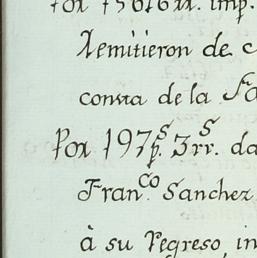 Por 15616 rr. imp.
Remitieron de c
conra de la Fa
Por 197p.s 3rr.s da
Fran.co Sanchez
à su Regreso, in